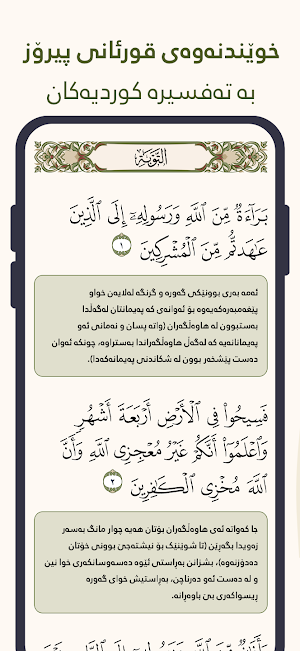 خوێندنەوەی قورئانی پیرۆز
بە تەفسیرە کوردیەکان
التوبة
بَرَآءَةٌ مِّنَ ٱللَّهِ وَرَسُولِهِۦٓ إِلَى ٱلَّذِينَ
عَٰهَدتُّم مِّنَ ٱلْمُشْرِكِينَ ١
ئەمە بەری بوونێکی گەورە و گرنگە لەلایەن خواو
پێغەمبەرەکەیەوە بۆ ئەوانەی کە پەیمانتان لەگەڵدا
بەستبوون لە هاوەڵگەران (واتە پسان و نەمانی ئەو
پەیمانانەیە کە لەگەڵ هاوەڵگەراندا بەستراوە، چونکە ئەوان
دەست پێشخەر بوون لە شکاندنی پەیمانەکەدا).
فَسِيحُوا۟ فِى ٱلْأَرْضِ أَرْبَعَةَ أَشْهُرٍ
وَٱعْلَمُوٓا۟ أَنَّكُمْ غَيْرُ مُعْجِزِى ٱللَّهِ وَأَنَّ
ٱللَّهَ مُخْزِى ٱلْكَٰفِرِينَ ٢
جا کەواتە ئەی هاوەڵگەران بۆتان هەیە چوار مانگ بەسەر
زەویدا بگەڕێن (تا شوێنێک بۆ نیشتەجێ بوونی خۆتان
دەدۆزنەوە)، بشزانن بەڕاستی ئێوە دەسەوسانکەری خوا نین
و لە دەست ئەو دەرناچن، بەڕاستیش خوای گەورە
ڕیسواکەری بێ باوەڕانە.